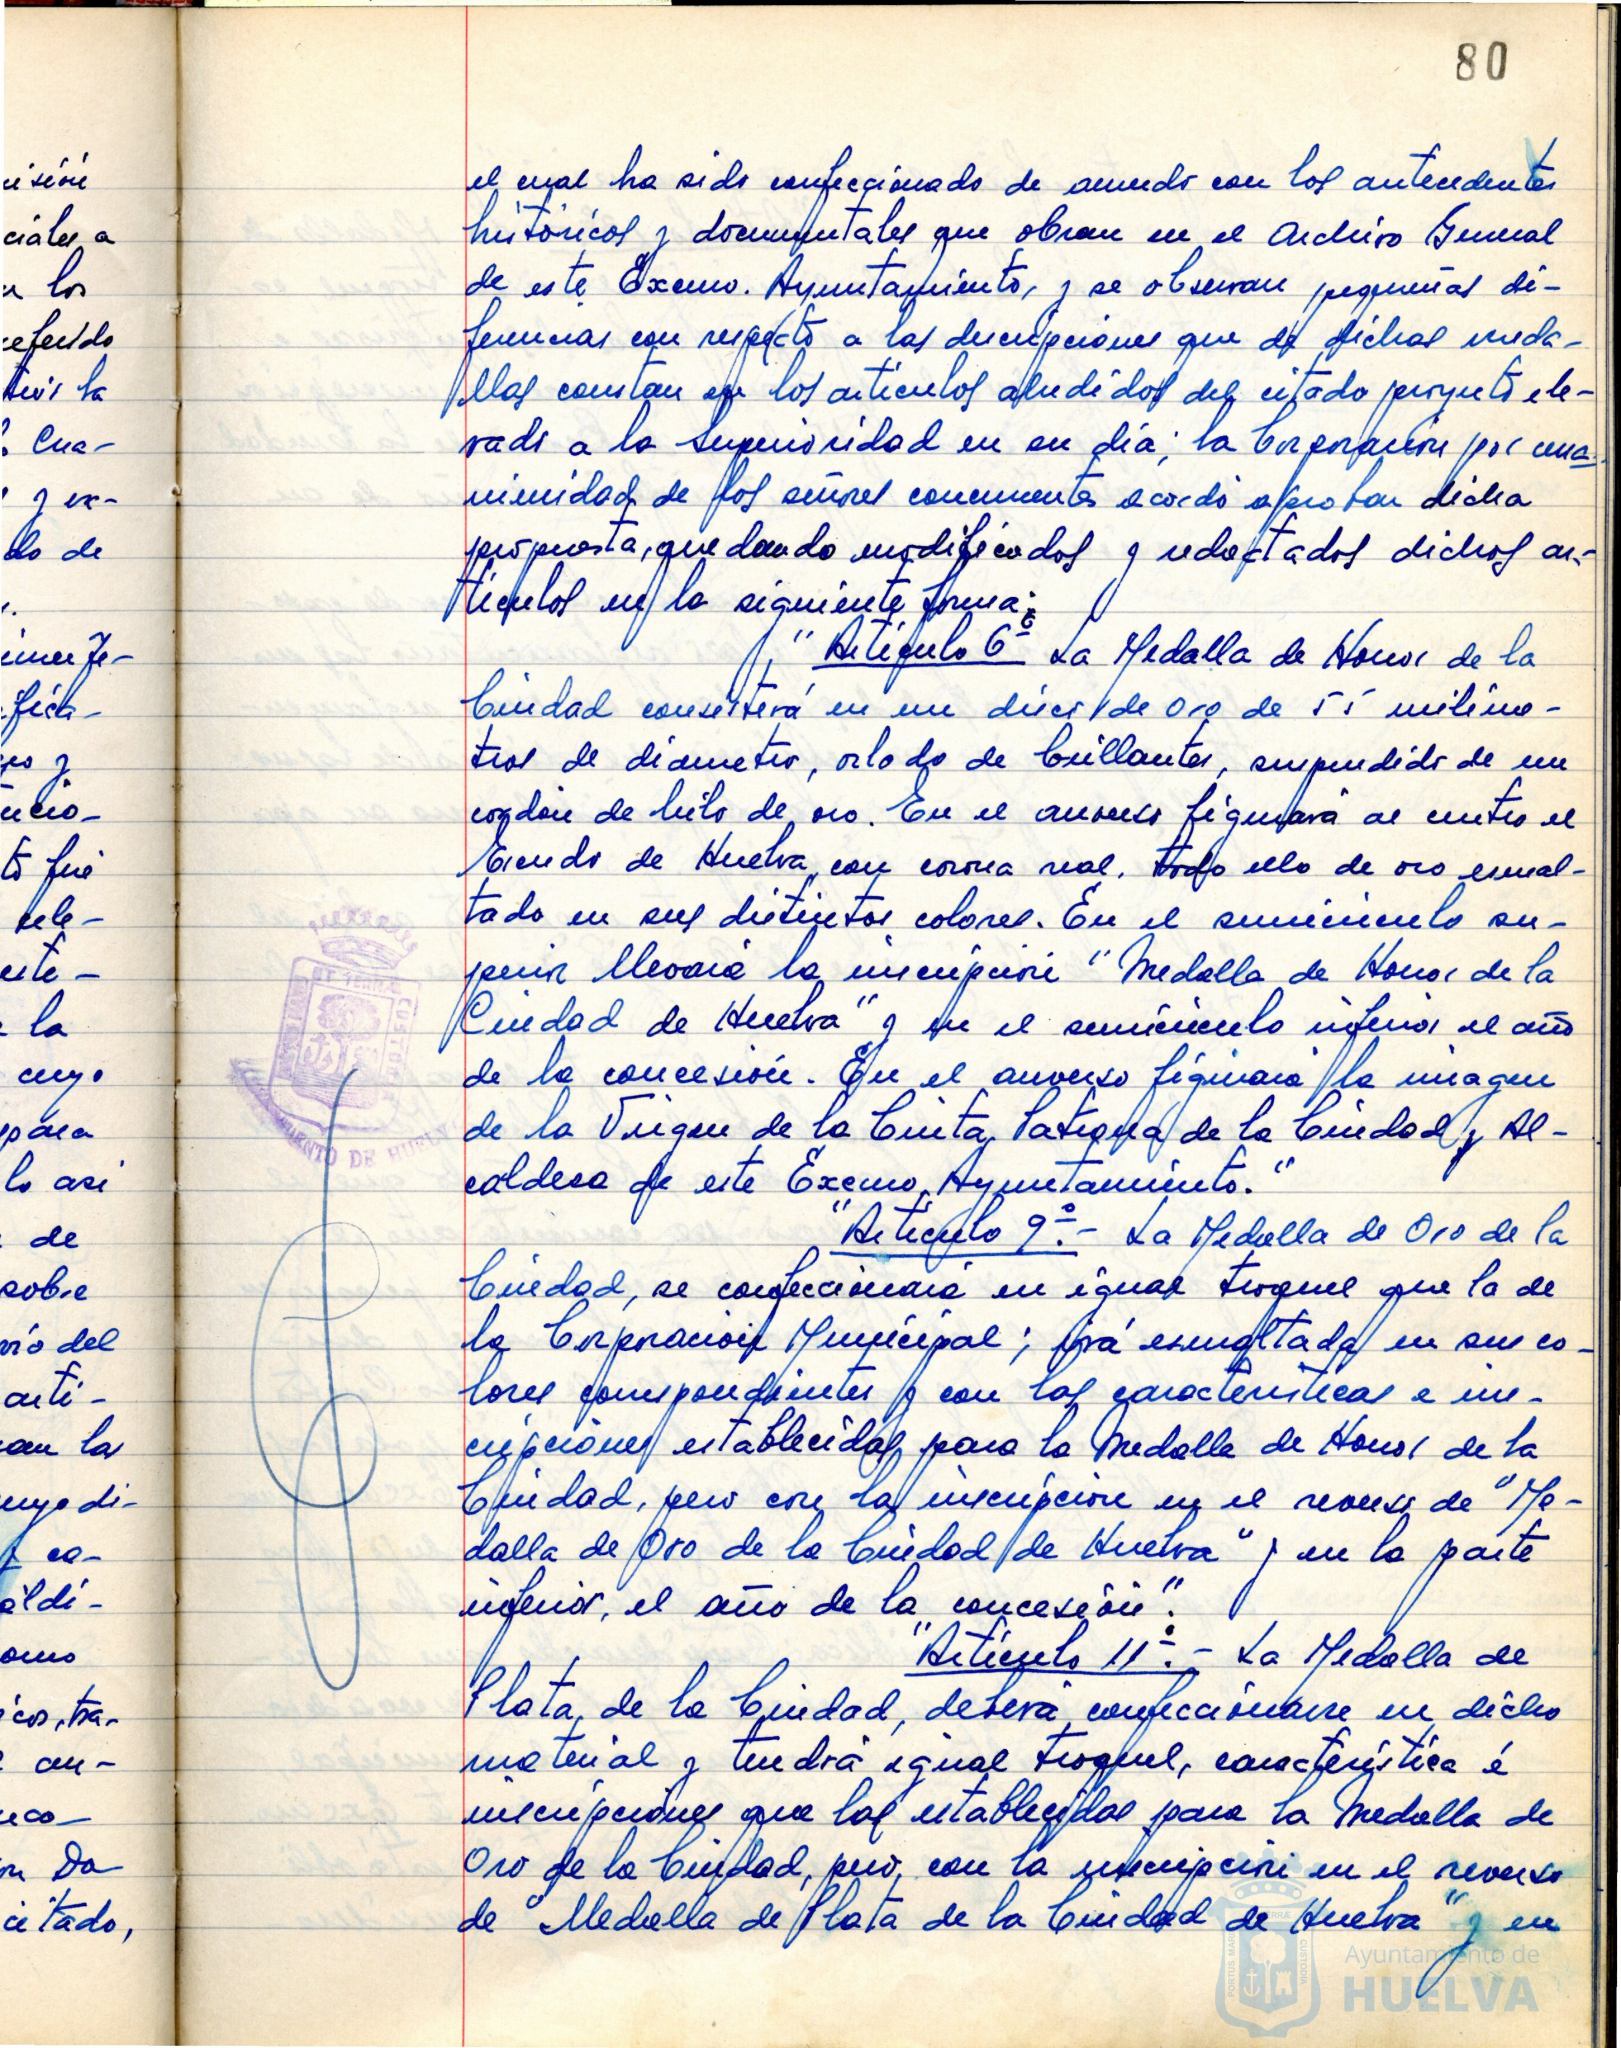 80
isión
ciales, a
los
referido
la
Cua-
y ex-
do de
fica-
y
fué
ele-
este-
la
cuyo
para
lo así
de
sobre
del
arti-
las
cuyo di-
ca-
aldi-
como
cos, tra-
an-
Da
citado,
el cual ha sido confeccionado de acuerdo con los antecedentes
históricos y documentales que obran en el Archivo General
de este Excmo. Ayuntamiento, y se observan pequeñas di-
ferencias con respecto a las descripciones que de dichas meda-
llas constan en los artículos aludidos del citado proyecto ele-
vado a la Superioridad en su día; la Corporación por una-
nimidad de los señores concurrentes acordó aprobar dicha
propuesta, quedando modificados y redactados dichos ar-
tículos en la siguiente forma:
"Artículo 6º La Medalla de Honor de la
Ciudad consistirá en un disco de Oro de 55 milíme-
tros de diametro, orlado de brillantes, suspendido de un
cordón de hilo de oro. En el anverso figurará al centro el
Escudo de Huelva con corona real, todo ello de oro esmal-
tado en sus distintos colores. En el semicirculo su-
perior llevará la inscripción "Medalla de Honor de la
Ciudad de Huelva" y en el semicirculo inferior el año
de la concesión. En el anverso figurará la imagen
de la Virgen de la Cinta, Patrona de la Ciudad y Al-
caldesa de este Excmo. Ayuntamiento."
"Artículo 9º.- La Medalla de Oro de la
Ciudad, se confeccionará en igual troquel que la de
la Corporación Municipal; irá esmaltada en sus co-
lores correspondientes y con las características e ins-
cripciones establecidas para la Medalla de Honor de la
Ciudad, pero con la inscripción en el reverso de "Me-
dalla de Oro de la Ciudad de Huelva" y en la parte
inferior, el año de la concesión".
"Artículo 11º.- La Medalla de
Plata, de la Ciudad, deberá confeccionarse en dicho
material y tendrá igual troquel, característica é
inscripciones que las establecidas para la Medalla de
Oro de la Ciudad, pero, con la inscripción en el reverso
de "Medalla de Plata de la Ciudad de Huelva" y en
TERRAE CUSTODIA
AYUNTAMIENTO DE HUELVA
PORTUS MARIS ET TERRAE CUSTODIA
Ayuntamiento de
HUELVA